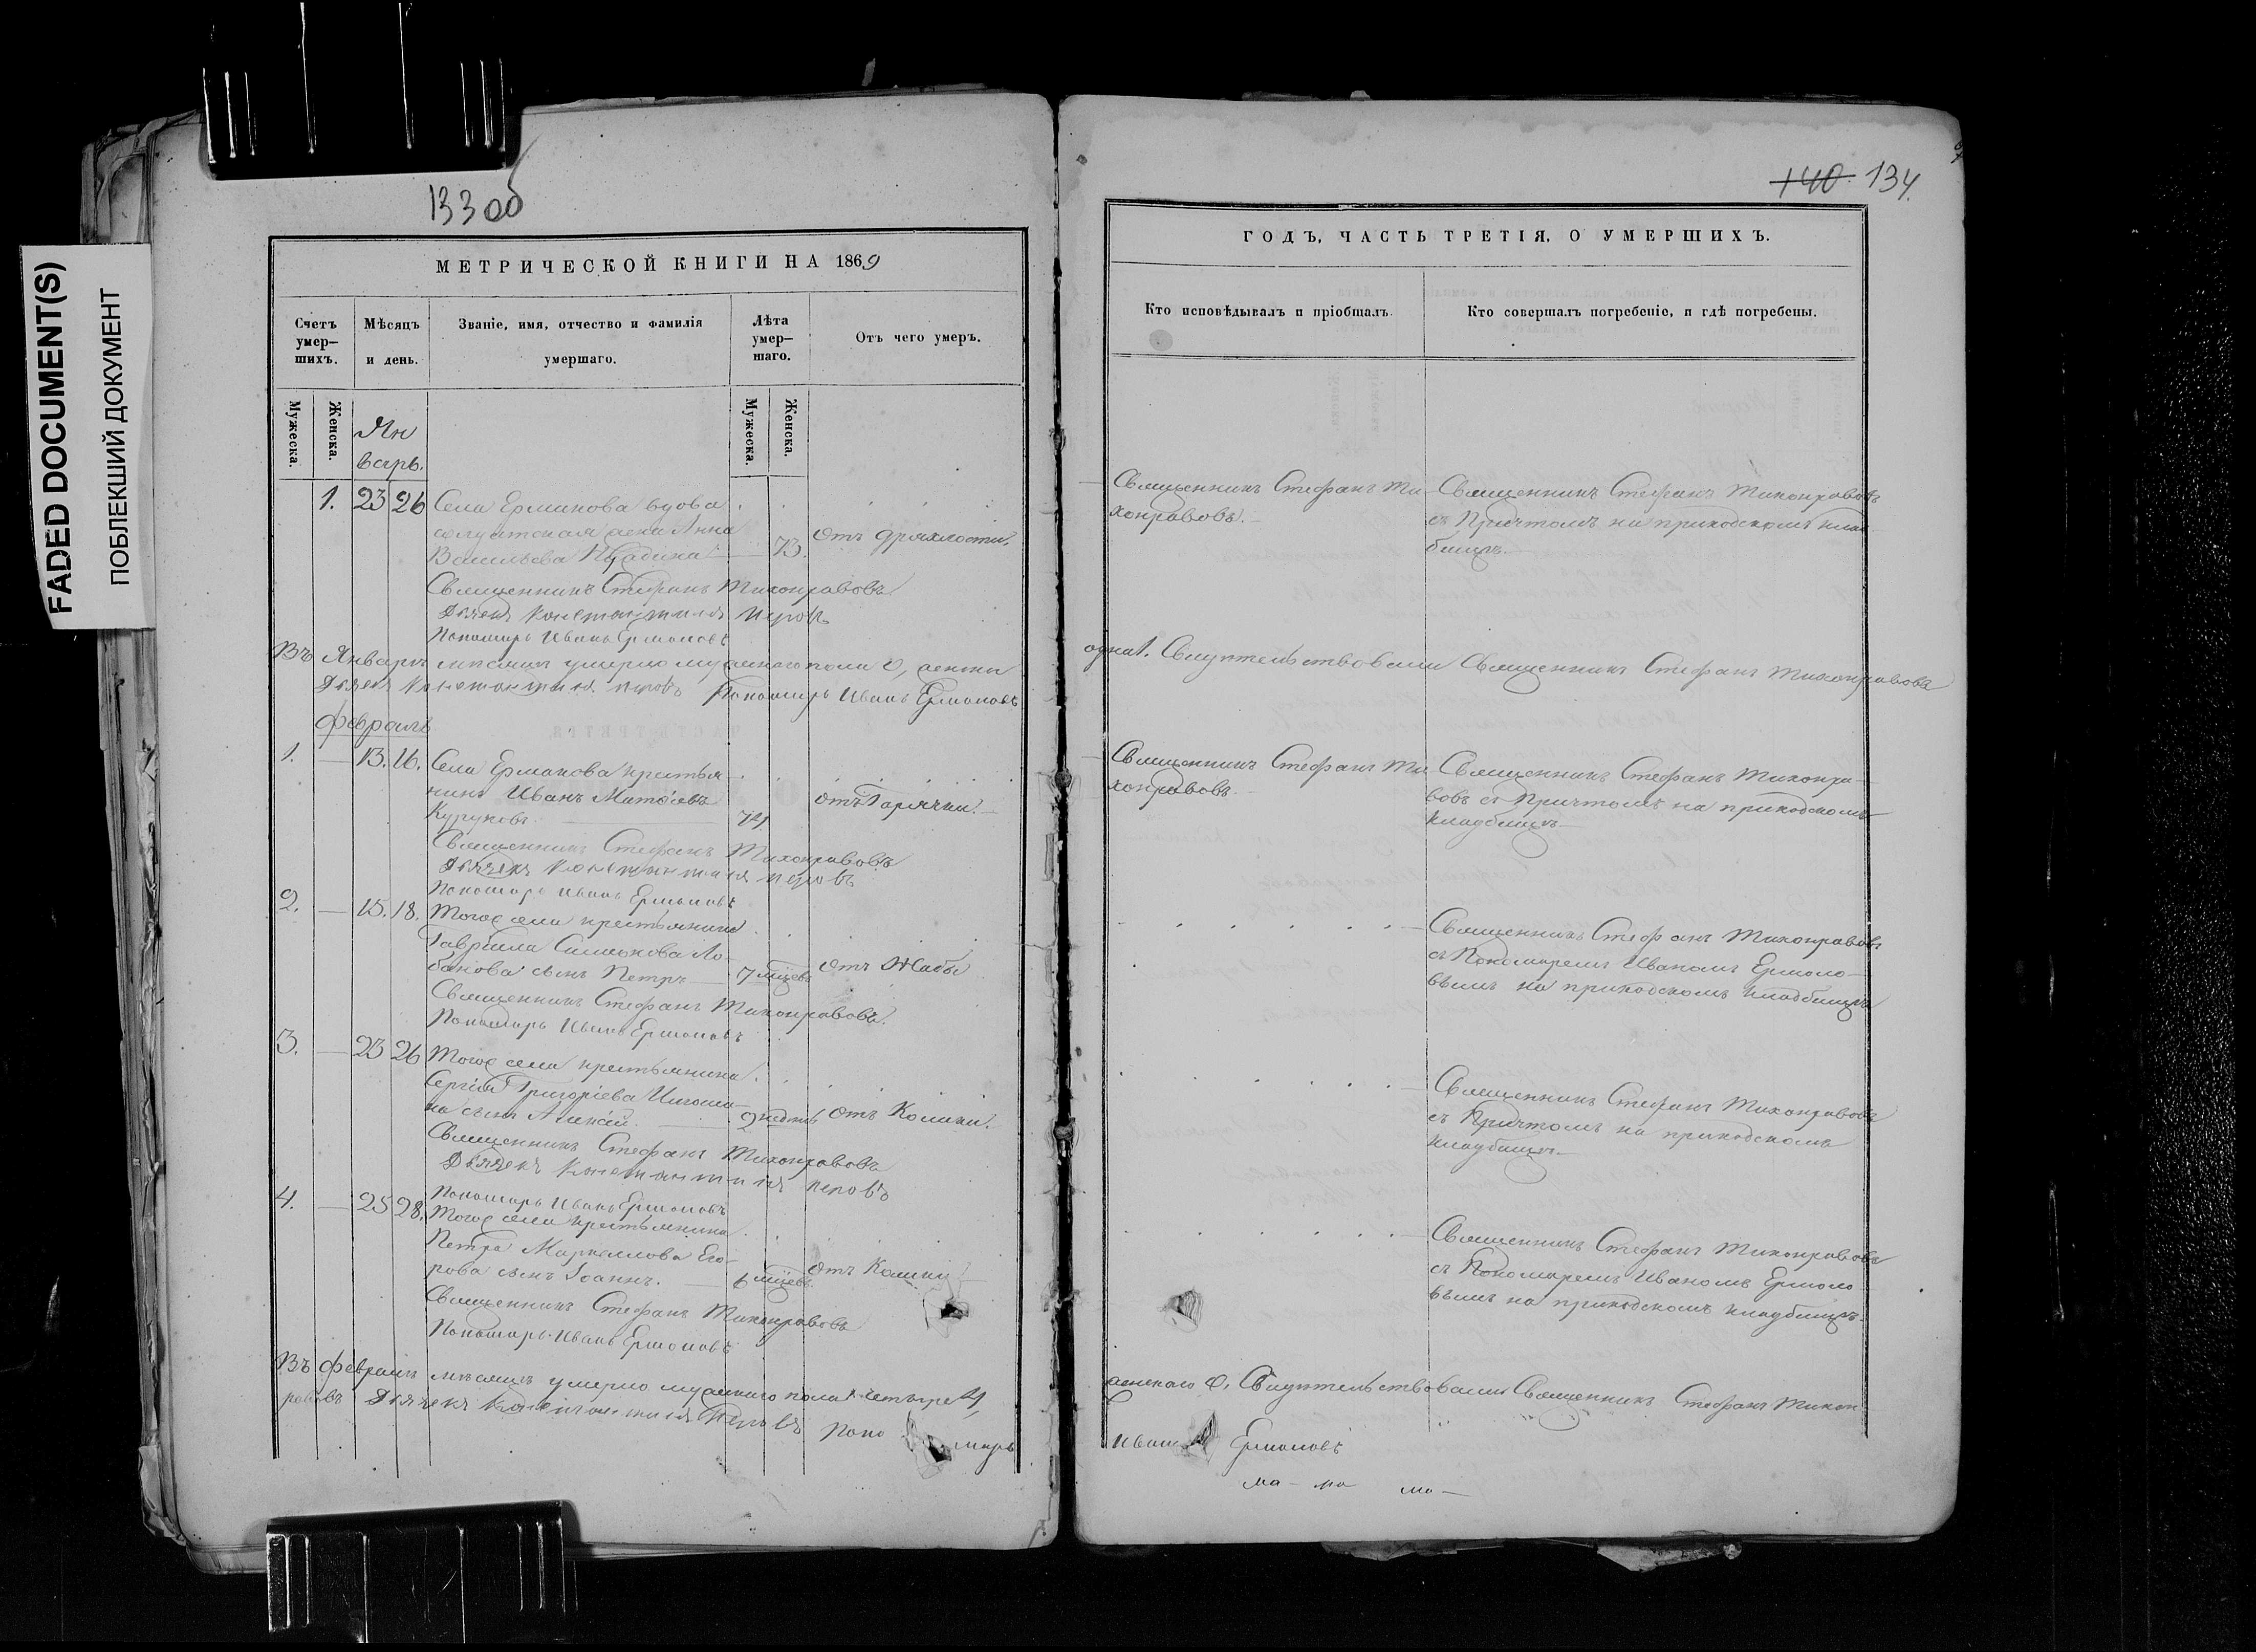 FADED DOCUMENT(S)
ПОБЛЕКШИЙ ДОКУМЕНТ
133 об
МЕТРИЧЕСКОЙ КНИГИ НА 1869
Счетъ умер-шихъ.
Мѣсяцъ и день.
Званіе, имя, отчество и фамилія умершаго.
Лѣта умер-шаго.
Отъ чего умеръ.
Мужеска.
Женска.
Ян
варь.
Мужеска.
Женска.
1. 23 26 Села Ермакова вдова
солдатская жена Анна
Васильева 73. отъ дряхлости.
Священникъ Стефанъ Тихонравовъ
Дьячекъ Константинъ Перовъ
Пономарь Иванъ Ермоловъ
Въ Январѣ мѣсяцѣ умерло мужескаго пола 0, женска
Дьячекъ Константинъ Перовъ Пономарь Иванъ Ермоловъ
Февраль
1. — 13. 16. Села Ермакова крестья-
нинъ Иванъ Матѳіевъ отъ Горячки.
74.
Священникъ Стефанъ Тихонравовъ
Дьячекъ Константинъ Перовъ
Пономарь Иванъ Ермоловъ
2. — 15. 18. Тогоже села крестьянина
Гавріила Симеонова Ло-
банова сынъ Петръ — 7 мѣсцевъ отъ Жабы
Священникъ Стефанъ Тихонравовъ.
Пономарь Иванъ Ермоловъ
3. — 23 26 Тогоже села крестьянина
Сергія Григоріева
на сынъ Алексій. 2 недѣль отъ Колики.
Священникъ Стефанъ Тихонравовъ
Дьячекъ Константинъ Перовъ
Пономарь Иванъ Ермоловъ
4. — 25 28. Тогоже села крестьянина
Петра Маркеллова Его-
рова сынъ Іоаннъ. — 6 мѣсцевъ. отъ Колики
Священникъ Стефанъ Тихонравовъ
Пономарь Иванъ Ермоловъ
Въ Февралѣ мѣсяцѣ умерло мужескаго пола четыре 4,
равовъ Дьячекъ Константинъ Перовъ Поно марь
140. 134.
ГОДЪ, ЧАСТЬ ТРЕТІЯ, О УМЕРШИХЪ.
Кто исповѣдывалъ и пріобщалъ.
Кто совершалъ погребеніе, и гдѣ погребены.
Священникъ Стефанъ Ти-
хонравовъ.
Священникъ Стефанъ Тихонравовъ
съ Причтомъ на приходскомъ клад-
бищѣ.
одна 1. Свидѣтельствовали Священникъ Стефанъ Тихонравовъ
Священникъ Стефанъ Ти-
хонравовъ.
Священникъ Стефанъ Тихонра-
вовъ съ Причтомъ на приходскомъ
кладбищѣ
Священникъ Стефанъ Тихонравовъ
съ Пономаремъ Иваномъ Ермоло-
вымъ на приходскомъ кладбищѣ
Священникъ Стефанъ Тихонравовъ
съ Причтомъ на приходскомъ
кладбищѣ
Священникъ Стефанъ Тихонравовъ
съ Пономаремъ Иваномъ Ермоло
вымъ на приходскомъ кладбищѣ.
женскаго 0. Свидѣтельствовали Священникъ Стефанъ Тихон
Иванъ Ермоловъ
ма – ма ма –